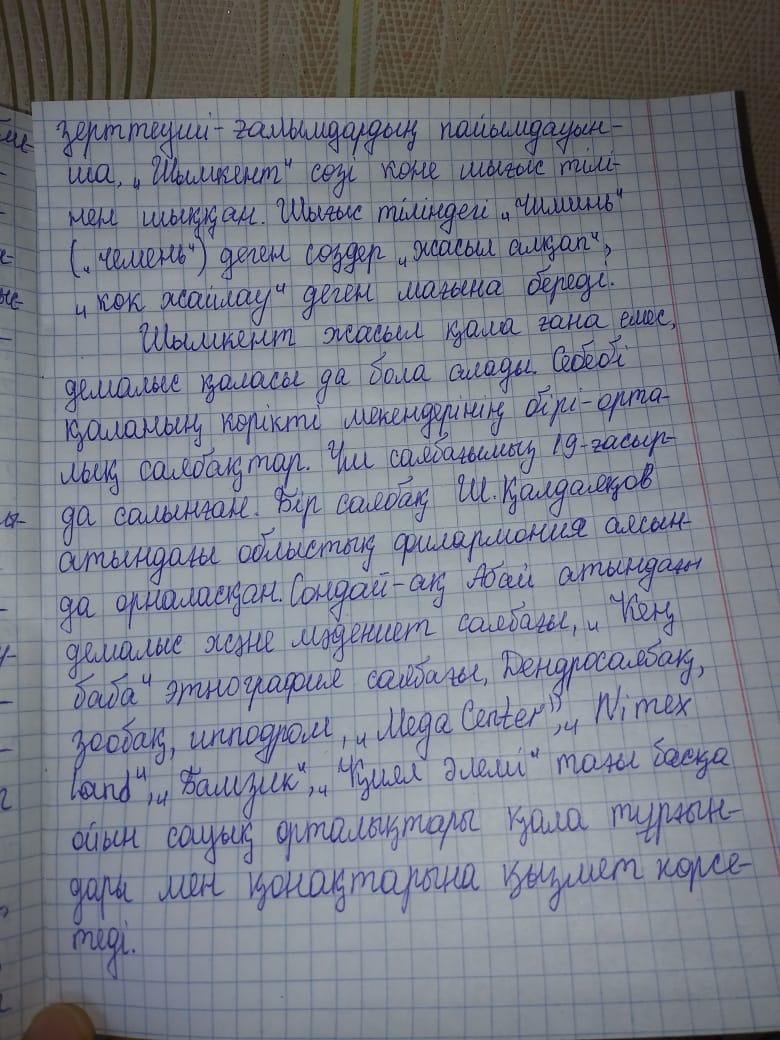 зерттеуші-ғалымдардың пайымдауын-
ша, „Шымкент“ сөзі көне шығыс тілі-
нен шыққан. Шығыс тіліндегі „чиминь“
(„чемень“) деген сөздер „жасыл алқап“,
„көк жайлау“ деген мағына береді.
Шымкент жасыл қала ғана емес,
демалыс қаласы да бола алады. Себебі
қаланың көрікті мекендерінің бірі-орта-
лық саябақтар. Үш саябағымыз 19-ғасыр-
да салынған. Бір саябақ Ш.Қалдаяқов
атындағы облыстық филармония аясын-
да орналасқан. Сондай-ақ Абай атындағы
демалыс және мәдениет саябағы, „Кең
баба“ этнография саябағы, Дендросаябақ,
зообақ, ипподром, „Mega Center“, „Nimex
land“, „Бамзик“, „Қиял әлемі“ тағы басқа
ойын сауық орталықтары қала тұрғын-
дары мен қонақтарына қызмет көрсе-
теді.